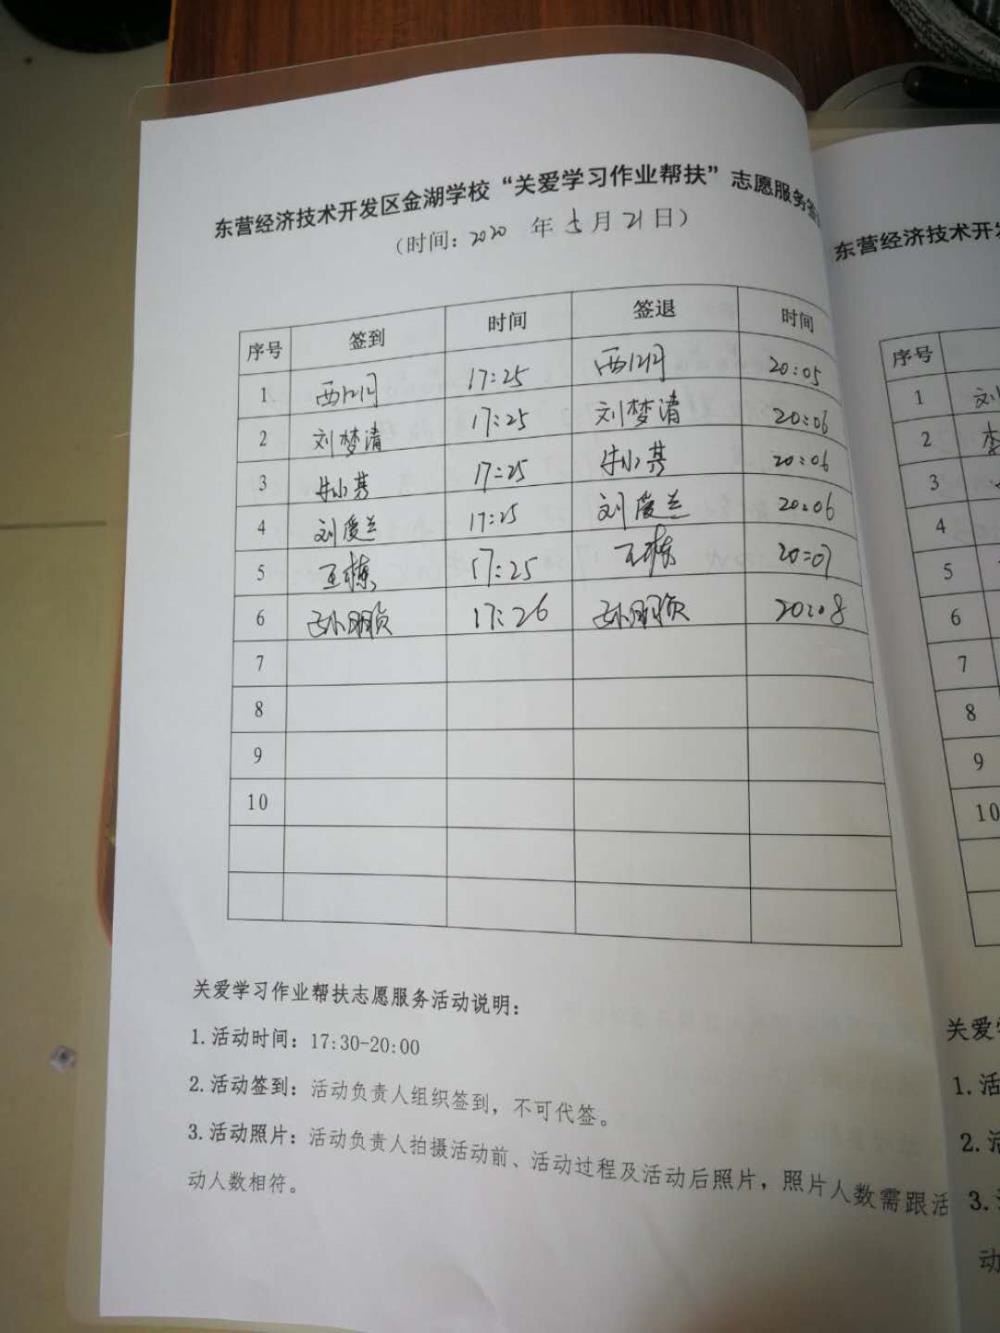 东营经济技术开发区金湖学校“关爱学习作业帮扶”志愿服务签
（时间：2020 年 5 月 21 日）
序号 签到 时间 签退 时间
1 17:25 20:05
2 刘梦清 17:25 刘梦清 20:06
3 17:25 20:06
4 刘爱兰 17:25 刘爱兰 20:06
5 王栋 17:25 王栋 20:07
6 孙明贞 17:26 孙明贞 20:08
7
8
9
10
关爱学习作业帮扶志愿服务活动说明：
1.活动时间：17:30-20:00
2.活动签到：活动负责人组织签到，不可代签。
3.活动照片：活动负责人拍摄活动前、活动过程及活动后照片，照片人数需跟活
动人数相符。
东营经济技术开发
序号
1 刘
2 李
3
4
5
6
7
8
9
10
关爱学
1.活
2.活
3.活
动